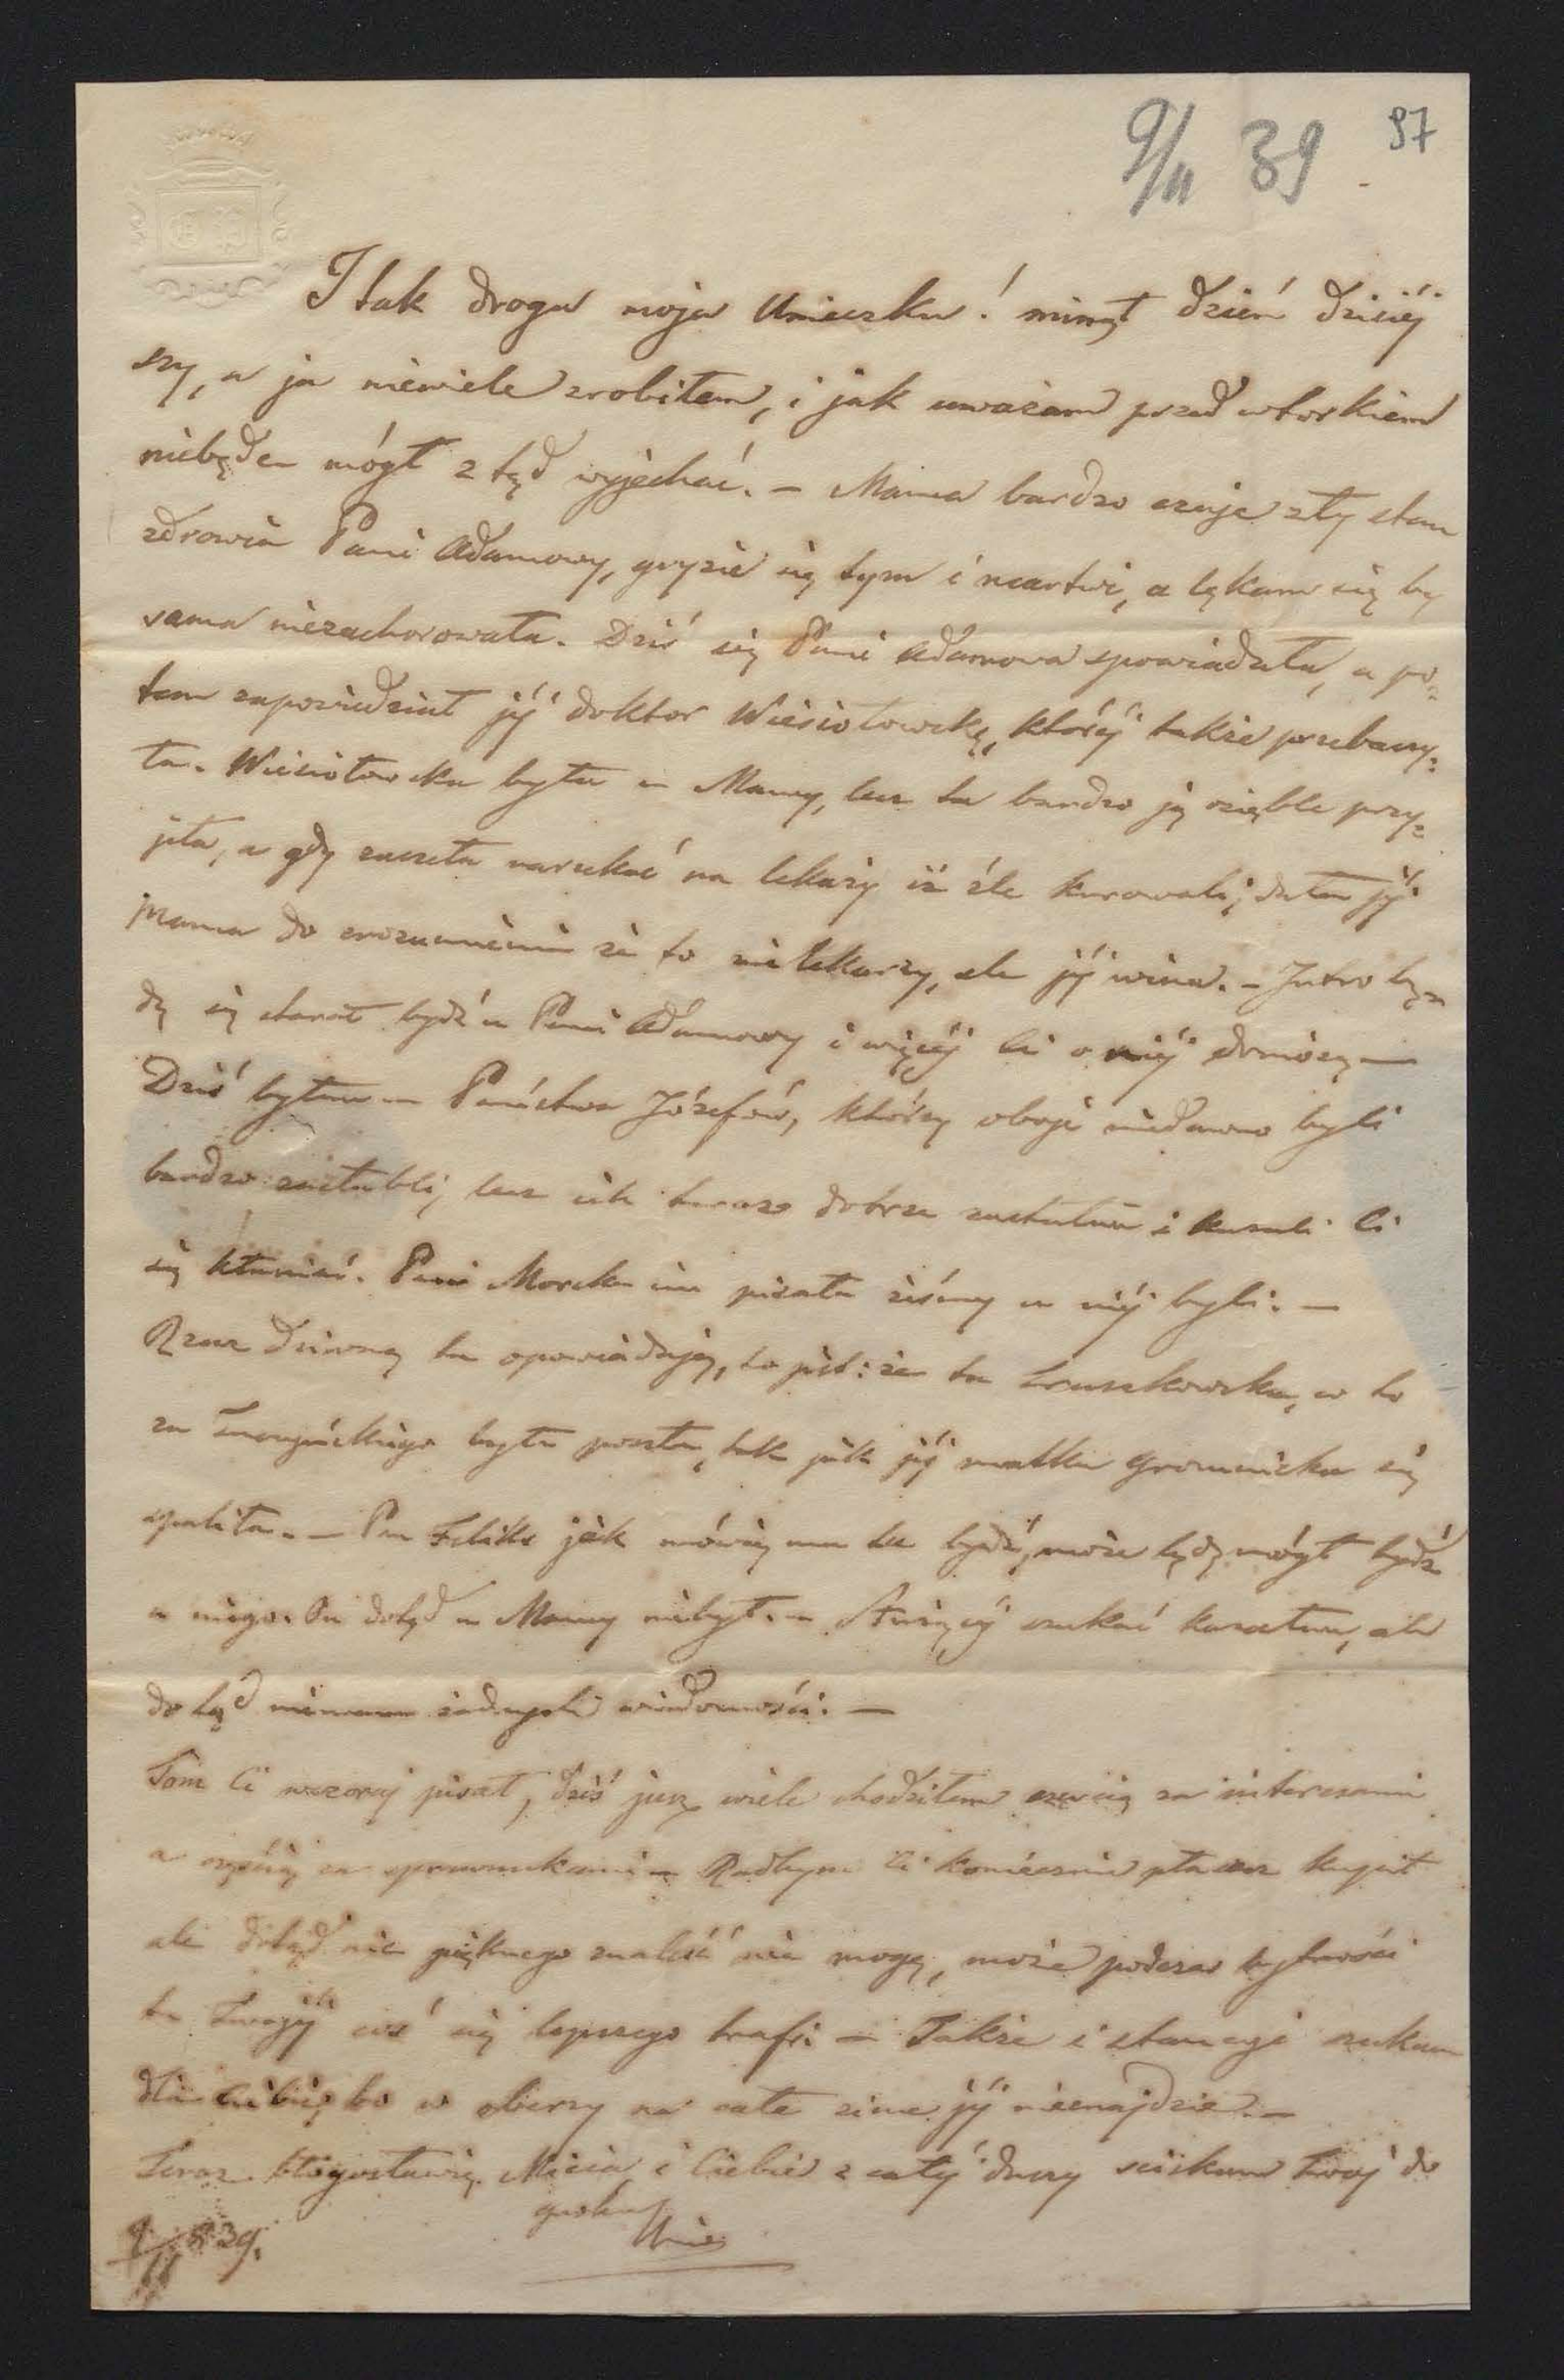 9/11 39 97
I tak droga moja Unieczku! minął dzień dzisiéj
szy, a ja niewiele zrobiłem, i jak uważam przed wtorkiem
niebęde mógł z tąd wyjechać. – Mama bardzo czuje zły stan
zdrowia Pani Adamowy, gryzie się tym i martwi, a lękam się by
sama niezachorowała. Dziś się Pani Adamowa spowiadała, a po=
tem zapowiedział jéj doktor Wiesiołowską, któréj także przebaczy=
ła. Wiesiołowska była u Mamy, lecz ta bardzo ją ozięble przy=
jeła, a gdy zaczeła narzekać na lekarzy iż źle kurowali, dała jéj
Mama do zrozumienia że to nie lekarzy, ale jéj wina. – Jutro bę=
dę się starał bydź u Pani Adamowy i więcéj Ci o niéj doniosę –
Dziś byłem u Państwa Józefów, którzy oboje niedawno byli
bardzo zasłabli, lecz ich teraz dobrze zastałem i kazali Ci
się kłaniać. Pani Morska im pisała żeśmy u niéj byli. –
Rzecz dziwną tu opowiadają, to jest: że ta Truszkowska, co to
za byłe poszła, tak jak jéj matka Gromnicka się
spaliła. – Pan Feliks jak mówią ma tu bydź, może będę mógł bydź
u niego. On dotąd u Mamy niebył. – szukać kasztana, ale
do tąd niemam żadnych wiadomości. –
Tom Ci wczoraj pisał, dziś już wiele chodziłem częścią za interesami
a częścią za sprawunkami – Radbym Ci koniecznie płaszcz kupił
ale dotąd nic pięknego znaleść nie mogę, może podczas bytności
tu Twojéj coś się lepszego trafi – Także i stancyi szukam
dla Ciebie, bo w oberzy na całe zime jéj nieznajdzie. –
Teraz błogosławię Micia i Ciebie z całéj duszy ściskam Twój do
grobu
Unio
9/11 839.